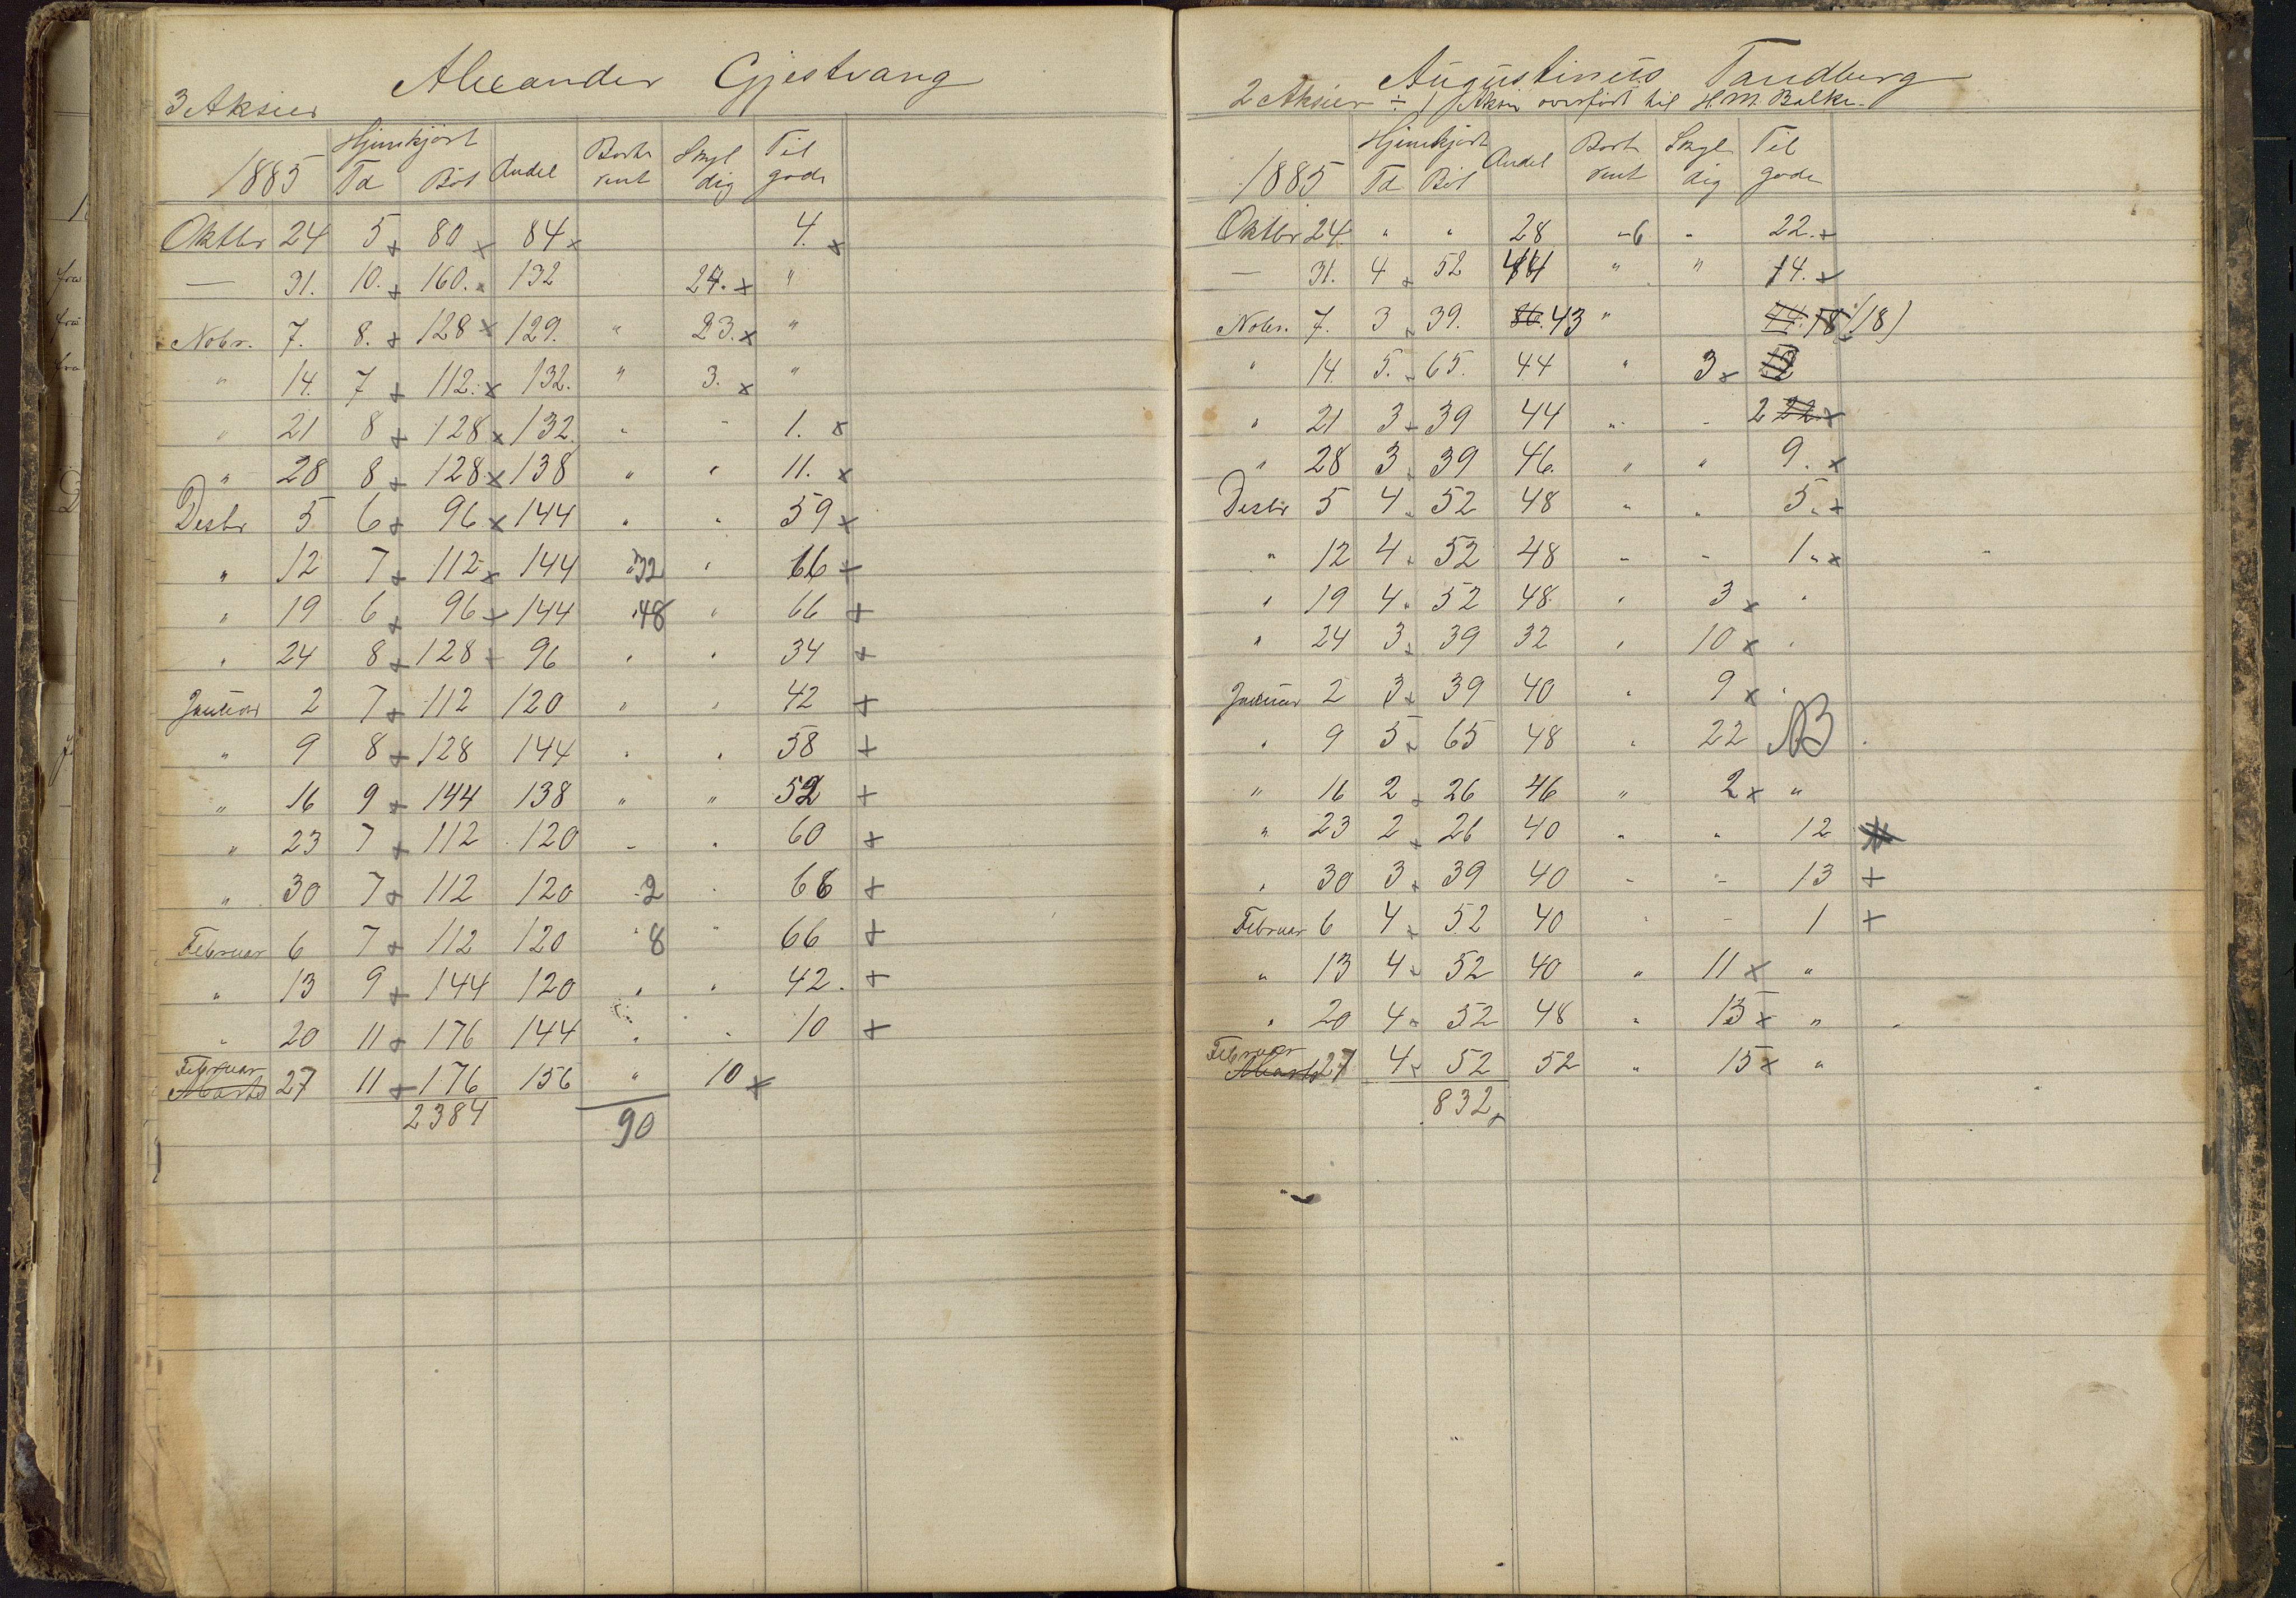 Alexander Gjestvang
3 Aksier
1885 Hjemkjørt Td Bøt Andel Bort rent Skyl dig Til gode
Oktbr 24 5 x 80 x 84 x 4. x
— 31. 10. x 160. x 132 24. x "
Nobr. 7. 8. x 128 x 129. " 23. x "
" 14. 7 x 112. x 132. " 3. x "
" 21 8 x 128 x 132. " - 1. x
" 28 8 x 128 x 138 " " 11. x
Desbr 5 6 x 96 x 144 " " 59 x
" 12 7 x 112 x 144 "32 " 66 x
" 19 6 x 96 x 144 "48 " 66 x
" 24 8 x 128 x 96 " " 34 x
Januar 2 7 x 112 120 " " 42 x
" 9 8 x 128 144 " " 58 x
" 16 9 x 144 138 " " 52 x
" 23 7 x 112 120 - " 60 x
" 30 7 x 112 120 -2 " 68 x
Februar 6 7 x 112 120 "8 " 66 x
" 13 9 x 144 120 " " 42. x
" 20 11 x 176 144 " " 10 x
Februar
Marts 27 11 x 176 156 " 10 x
2384 90
Augustinus Tandberg
2 Aksier ÷ 1 Aksie overført til H. M. Balke.
1885 Hjemkjørt Td Bøt Andel Bort rent Skyl dig Til gode
Oktbr 24. " " 28 -6 " 22. x
— 31. 4 x 52 44 " " 14. x
Nobr. 7. 3 x 39. 86. 43 " 44. 18 (18)
" 14. 5. x 65. 44 " 3 x
" 21 3 x 39 44 " - 2 22 x
" 28 3 x 39 46. " " 9. x
Desbr 5 4 x 52 48 " " 5. x
" 12 4 x 52 48 - - 1 " x
" 19 4 x 52 48. " 3 x "
" 24 3 x 39 32 " 10 x "
Januar 2 3 x 39 40 " 9 x "
" 9 5 x 65 48 " 22 NB
" 16 2 x 26 46 " 2 x "
" 23 2 x 26 40 " " 12 x
" 30 3 x 39 40 - - 13 x
Februar 6 4 x 52 40 " - 1 x
" 13 4 x 52 40 " 11 x "
" 20 4 x 52 48 " 15 x "
Februar
Marts 27 4 x 52 52 " 15 x "
832 x